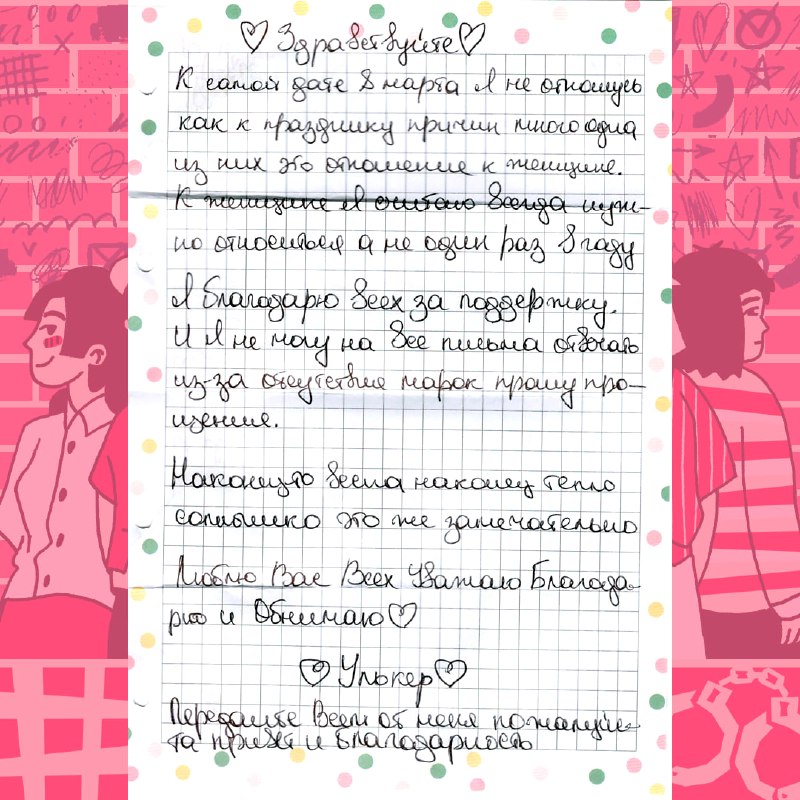 ♡ Здравствуйте ♡
К самой дате 8 марта Я не отношусь
как к празднику причин много одна
из них это отношение к женщине.
К женщине Я считаю Всегда нуж-
но относиться а не один раз В году
Я Благодарю Всех за поддержку.
И Я не могу на Все письма отвечать
из-за отсутствия марок прошу про-
щение.
Наконец-то Весна наконец тепло
солнышко это же замечательно
Люблю Вас Всех Уважаю Благода-
рю и Обнимаю ♡
♡ Улькер ♡
Передайте Всем от меня пожалуйс-
та привет и Благодарность